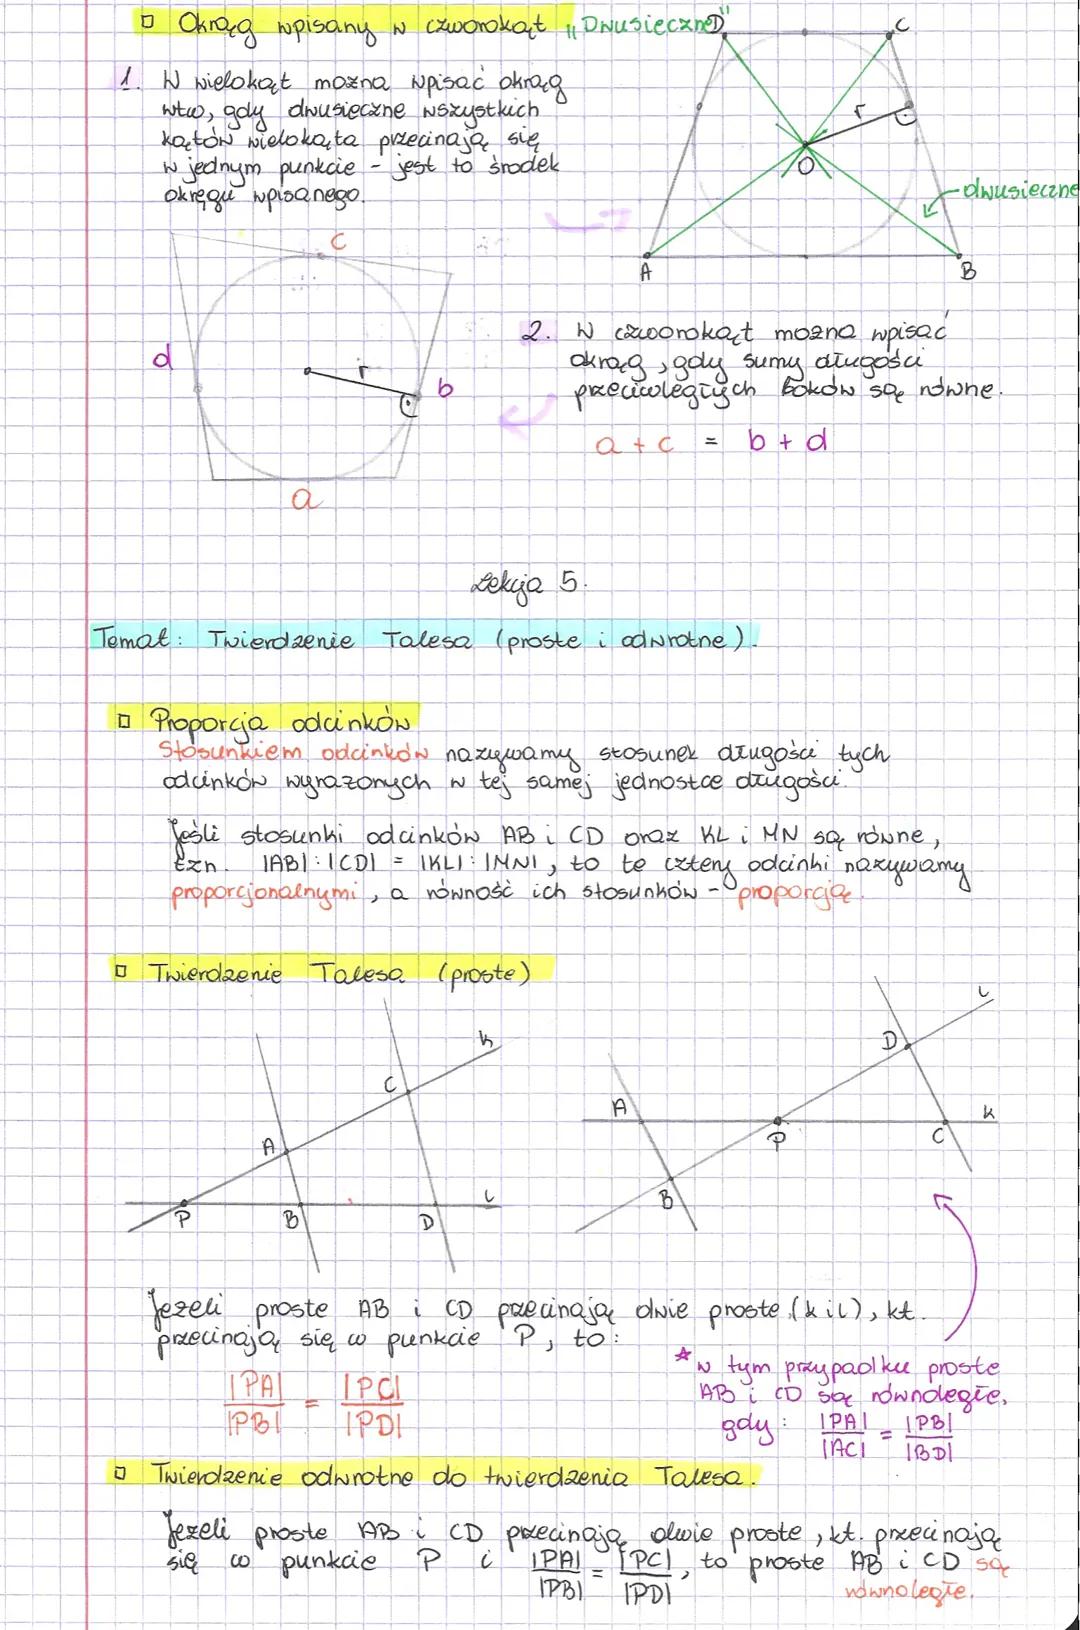 Okrąg wpisany w czworokąt „Dwusieczne"
1. W wielokąt można wpisać okrąg
wtw, gdy dwusieczne wszystkich
kątów wielokąta przecinają się
w jednym punkcie - jest to środek
okręgu wpisanego.
D
C
r
O
dwusieczne
A
B
c
d
r
b
a
2. W czworokąt można wpisać
okrąg, gdy sumy długości
przeciwległych boków są równe.
a + c = b + d
Lekcja 5.
Temat: Twierdzenie Talesa (proste i odwrotne).
Proporcja odcinków
Stosunkiem odcinków nazywamy stosunek długości tych
odcinków wyrażonych w tej samej jednostce długości.
Jeśli stosunki odcinków AB i CD oraz KL i MN są równe,
tzn. |AB| : |CD| = |KL| : |MN|, to te cztery odcinki nazywamy
proporcjonalnymi, a równość ich stosunków - proporcją.
Twierdzenie Talesa (proste)
k
C
A
P
B
D
l
l
D
A
k
P
C
B
Jeżeli proste AB i CD przecinają dwie proste (k i l), kt.
przecinają się w punkcie P, to:
|PA| / |PB| = |PC| / |PD|
* w tym przypadku proste
AB i CD są równoległe,
gdy: |PA| / |AC| = |PB| / |BD|
Twierdzenie odwrotne do twierdzenia Talesa.
Jeżeli proste AB i CD przecinają dwie proste, kt. przecinają
się w punkcie P i |PA| / |PB| = |PC| / |PD|, to proste AB i CD są
równoległe.